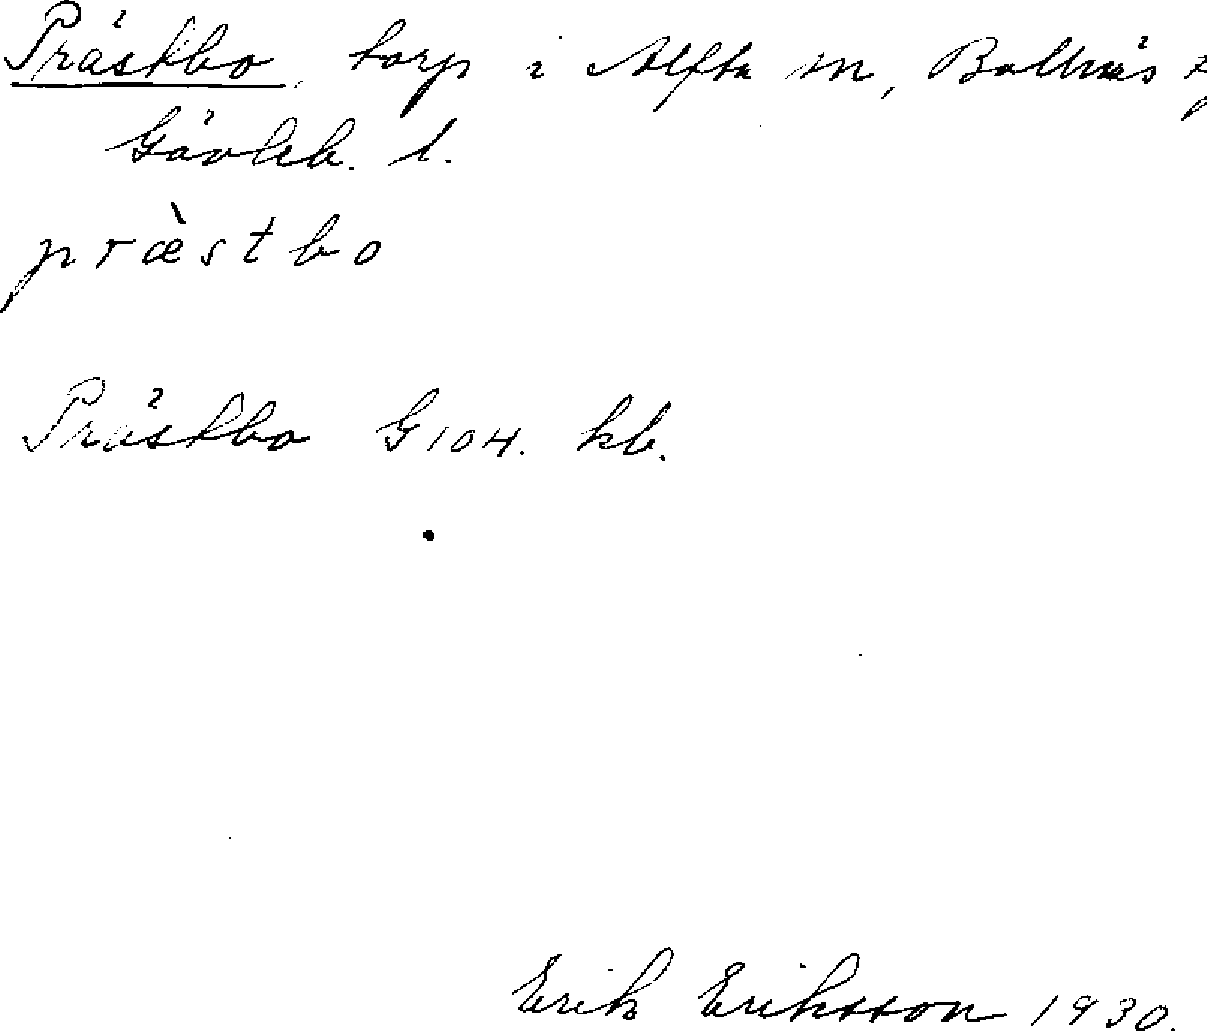 Prästbo, torp i Alfta sn, Bollnäs
Gävleb. l.
præ̀stbo
Prästbo G104. kb.
Erik Eriksson 1930.